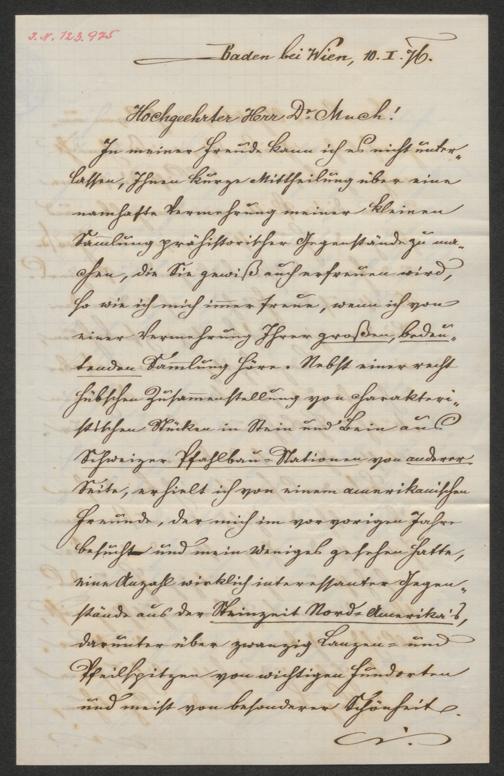 J.N. 123.975
Baden bei Wien, 10. I. 76.
Hochgeehrter Herr Dr. Much!
In meiner Freude kann ich es nicht unter-
lassen, Ihnen kurze Mittheilung über eine
namhafte Vermehrung meiner kleinen
Samlung prähistorischer Gegenstände zu ma-
chen, die Sie gewiß auch erfreuen wird,
so wie ich mich immer freue, wenn ich von
einer Vermehrung Ihrer großen, bedeu-
tenden Samlung höre. Nebst einer recht
hübschen Zusammenstellung von charakteri-
stischen Stücken in Stein und Bein aus
Schweizer Pfahlbau-Stationen von anderer
Seite, erhielt ich von einem amerikanischen
Freunde, der mich im vorvorigen Jahre
besucht und mein Weniges gesehen hatte,
eine Anzahl wirklich interessanter Gegen-
stände aus der Steinzeit Nord-Amerika's,
darunter über zwanzig Lanzen- und
Pfeilspitzen von wichtigen Fundorten
und meist von besonderer Schönheit.